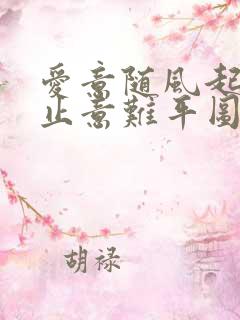 愛意随風起
止意難平围
胡禄